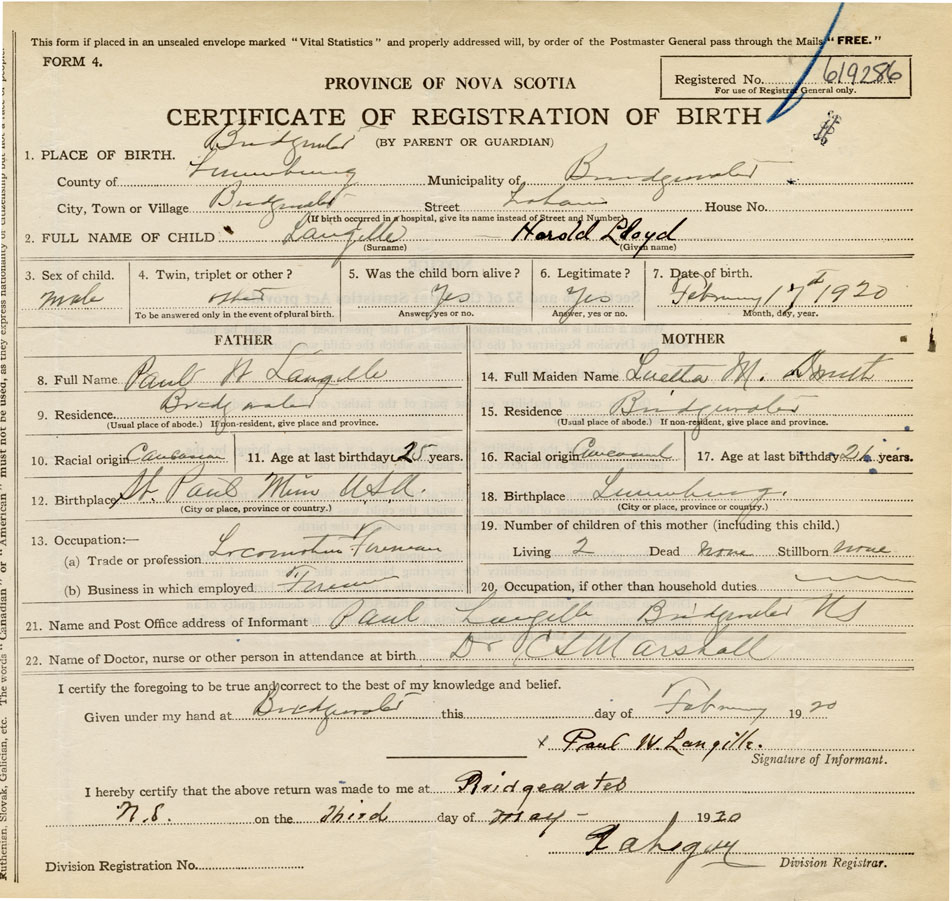 This form if placed in an unsealed envelope marked "Vital Statistics" and properly addressed will, by order of the Postmaster General pass through the Mails "FREE."
FORM 4.
Registered No. 619286
For use of Registrar General only.
PROVINCE OF NOVA SCOTIA
CERTIFICATE OF REGISTRATION OF BIRTH
(BY PARENT OR GUARDIAN)
1. PLACE OF BIRTH. Bridgewater
County of Lunenburg Municipality of Bridgewater
City, Town or Village Bridgewater Street House No.
(If birth occurred in a hospital, give its name instead of Street and Number)
2. FULL NAME OF CHILD Langille Harold Lloyd
(Surname) (Given name)
3. Sex of child. 4. Twin, triplet or other? 5. Was the child born alive? 6. Legitimate? 7. Date of birth.
male Yes Yes February 17th 1920
To be answered only in the event of plural birth. Answer, yes or no. Answer, yes or no. Month, day, year.
FATHER
8. Full Name Paul W Langille
9. Residence. Bridgewater
(Usual place of abode.) If non-resident, give place and province.
10. Racial origin Caucasian 11. Age at last birthday 25 years.
12. Birthplace St. Paul Minn USA.
(City or place, province or country.)
13. Occupation:—
(a) Trade or profession Locomotive Fireman
(b) Business in which employed Fireman
MOTHER
14. Full Maiden Name Luetta M.
15. Residence Bridgewater
(Usual place of abode.) If non-resident, give place and province.
16. Racial origin 17. Age at last birthday years.
18. Birthplace Lunenburg.
(City or place, province or country.)
19. Number of children of this mother (including this child.)
Living 2 Dead none Stillborn none
20. Occupation, if other than household duties
21. Name and Post Office address of Informant Paul Langille Bridgewater NS
22. Name of Doctor, nurse or other person in attendance at birth Dr CS Marshall
I certify the foregoing to be true and correct to the best of my knowledge and belief.
Given under my hand at Bridgewater this day of February 1920
x Paul W. Langille.
Signature of Informant.
I hereby certify that the above return was made to me at Bridgewater
N.S. on the third day of may - 1920
Division Registration No. Division Registrar.